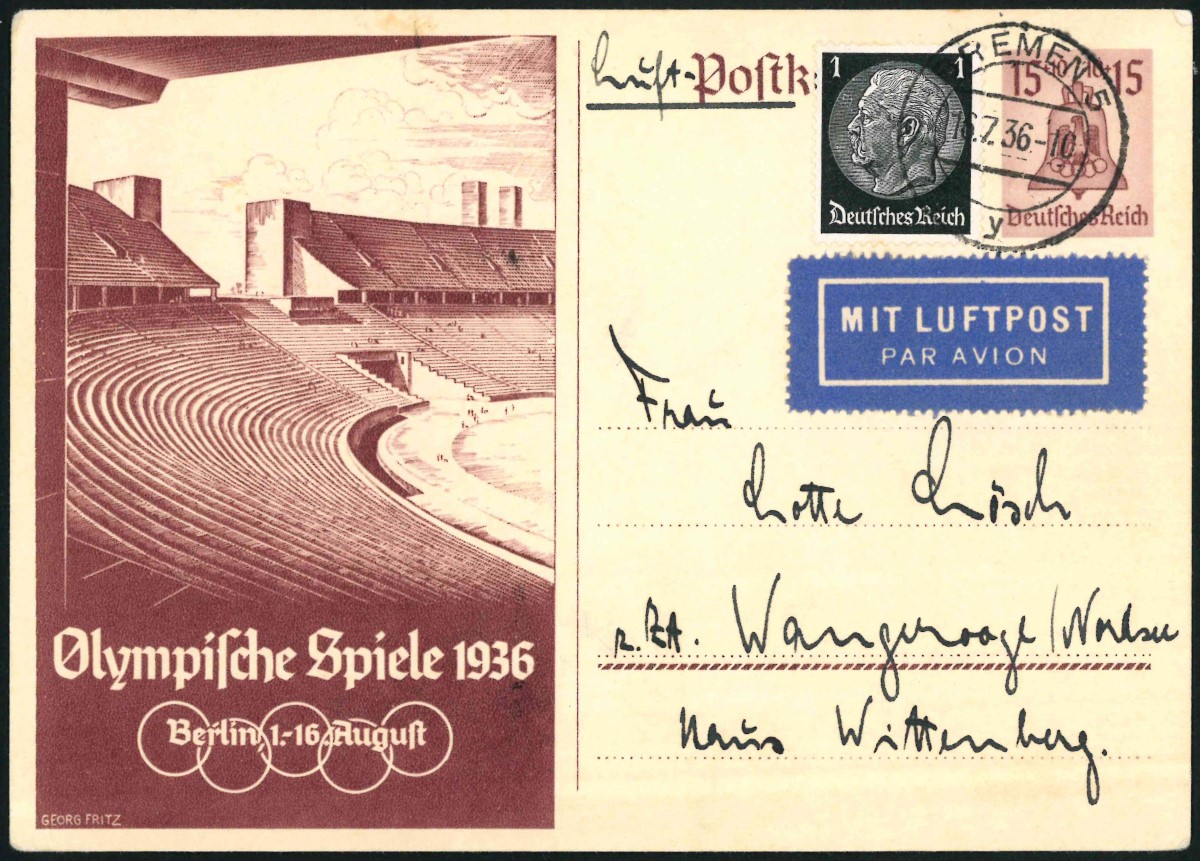 Olympische Spiele 1936
Berlin, 1.-16. August
GEORG FRITZ
Luft-Postk
1 1
Deutsches Reich
BREMEN 5
16.7.36-10
y
15 15
Deutsches Reich
MIT LUFTPOST
PAR AVION
Frau
Lotte Lösch
z. Zt. Wangerooge/Nordsee
Haus Wittenberg.